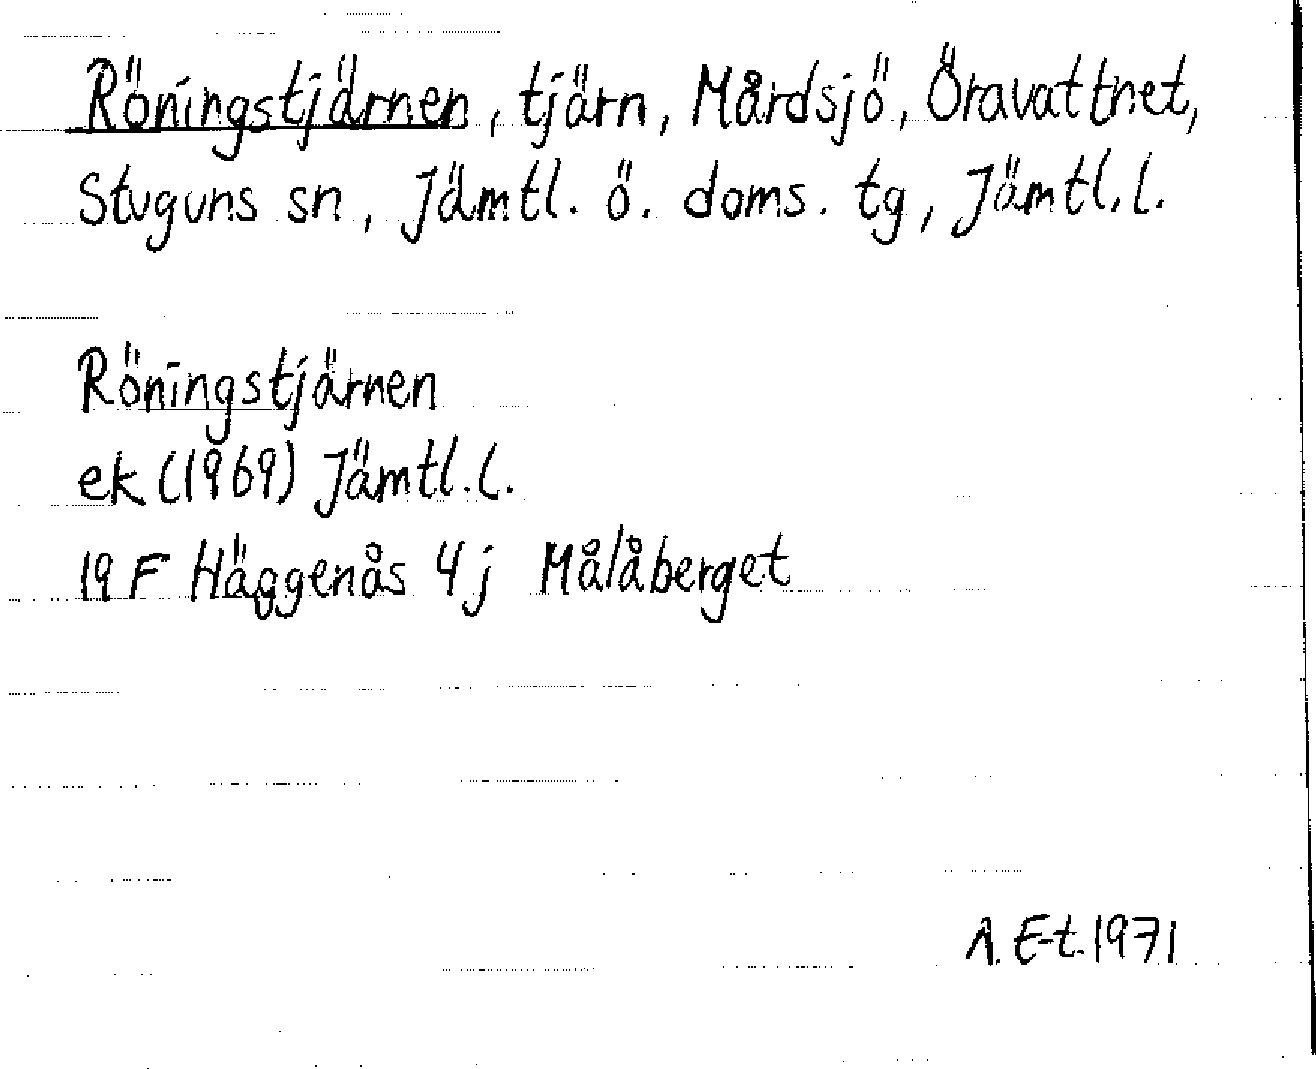 Röningstjärnen, tjärn, Mårdsjö, Öravattnet,
Stuguns sn, Jämtl. ö. doms. tg, Jämtl. l.
Röningstjärnen
ek (1969) Jämtl. l.
19 F Häggenås 4 j Målåberget
A. E-t. 1971